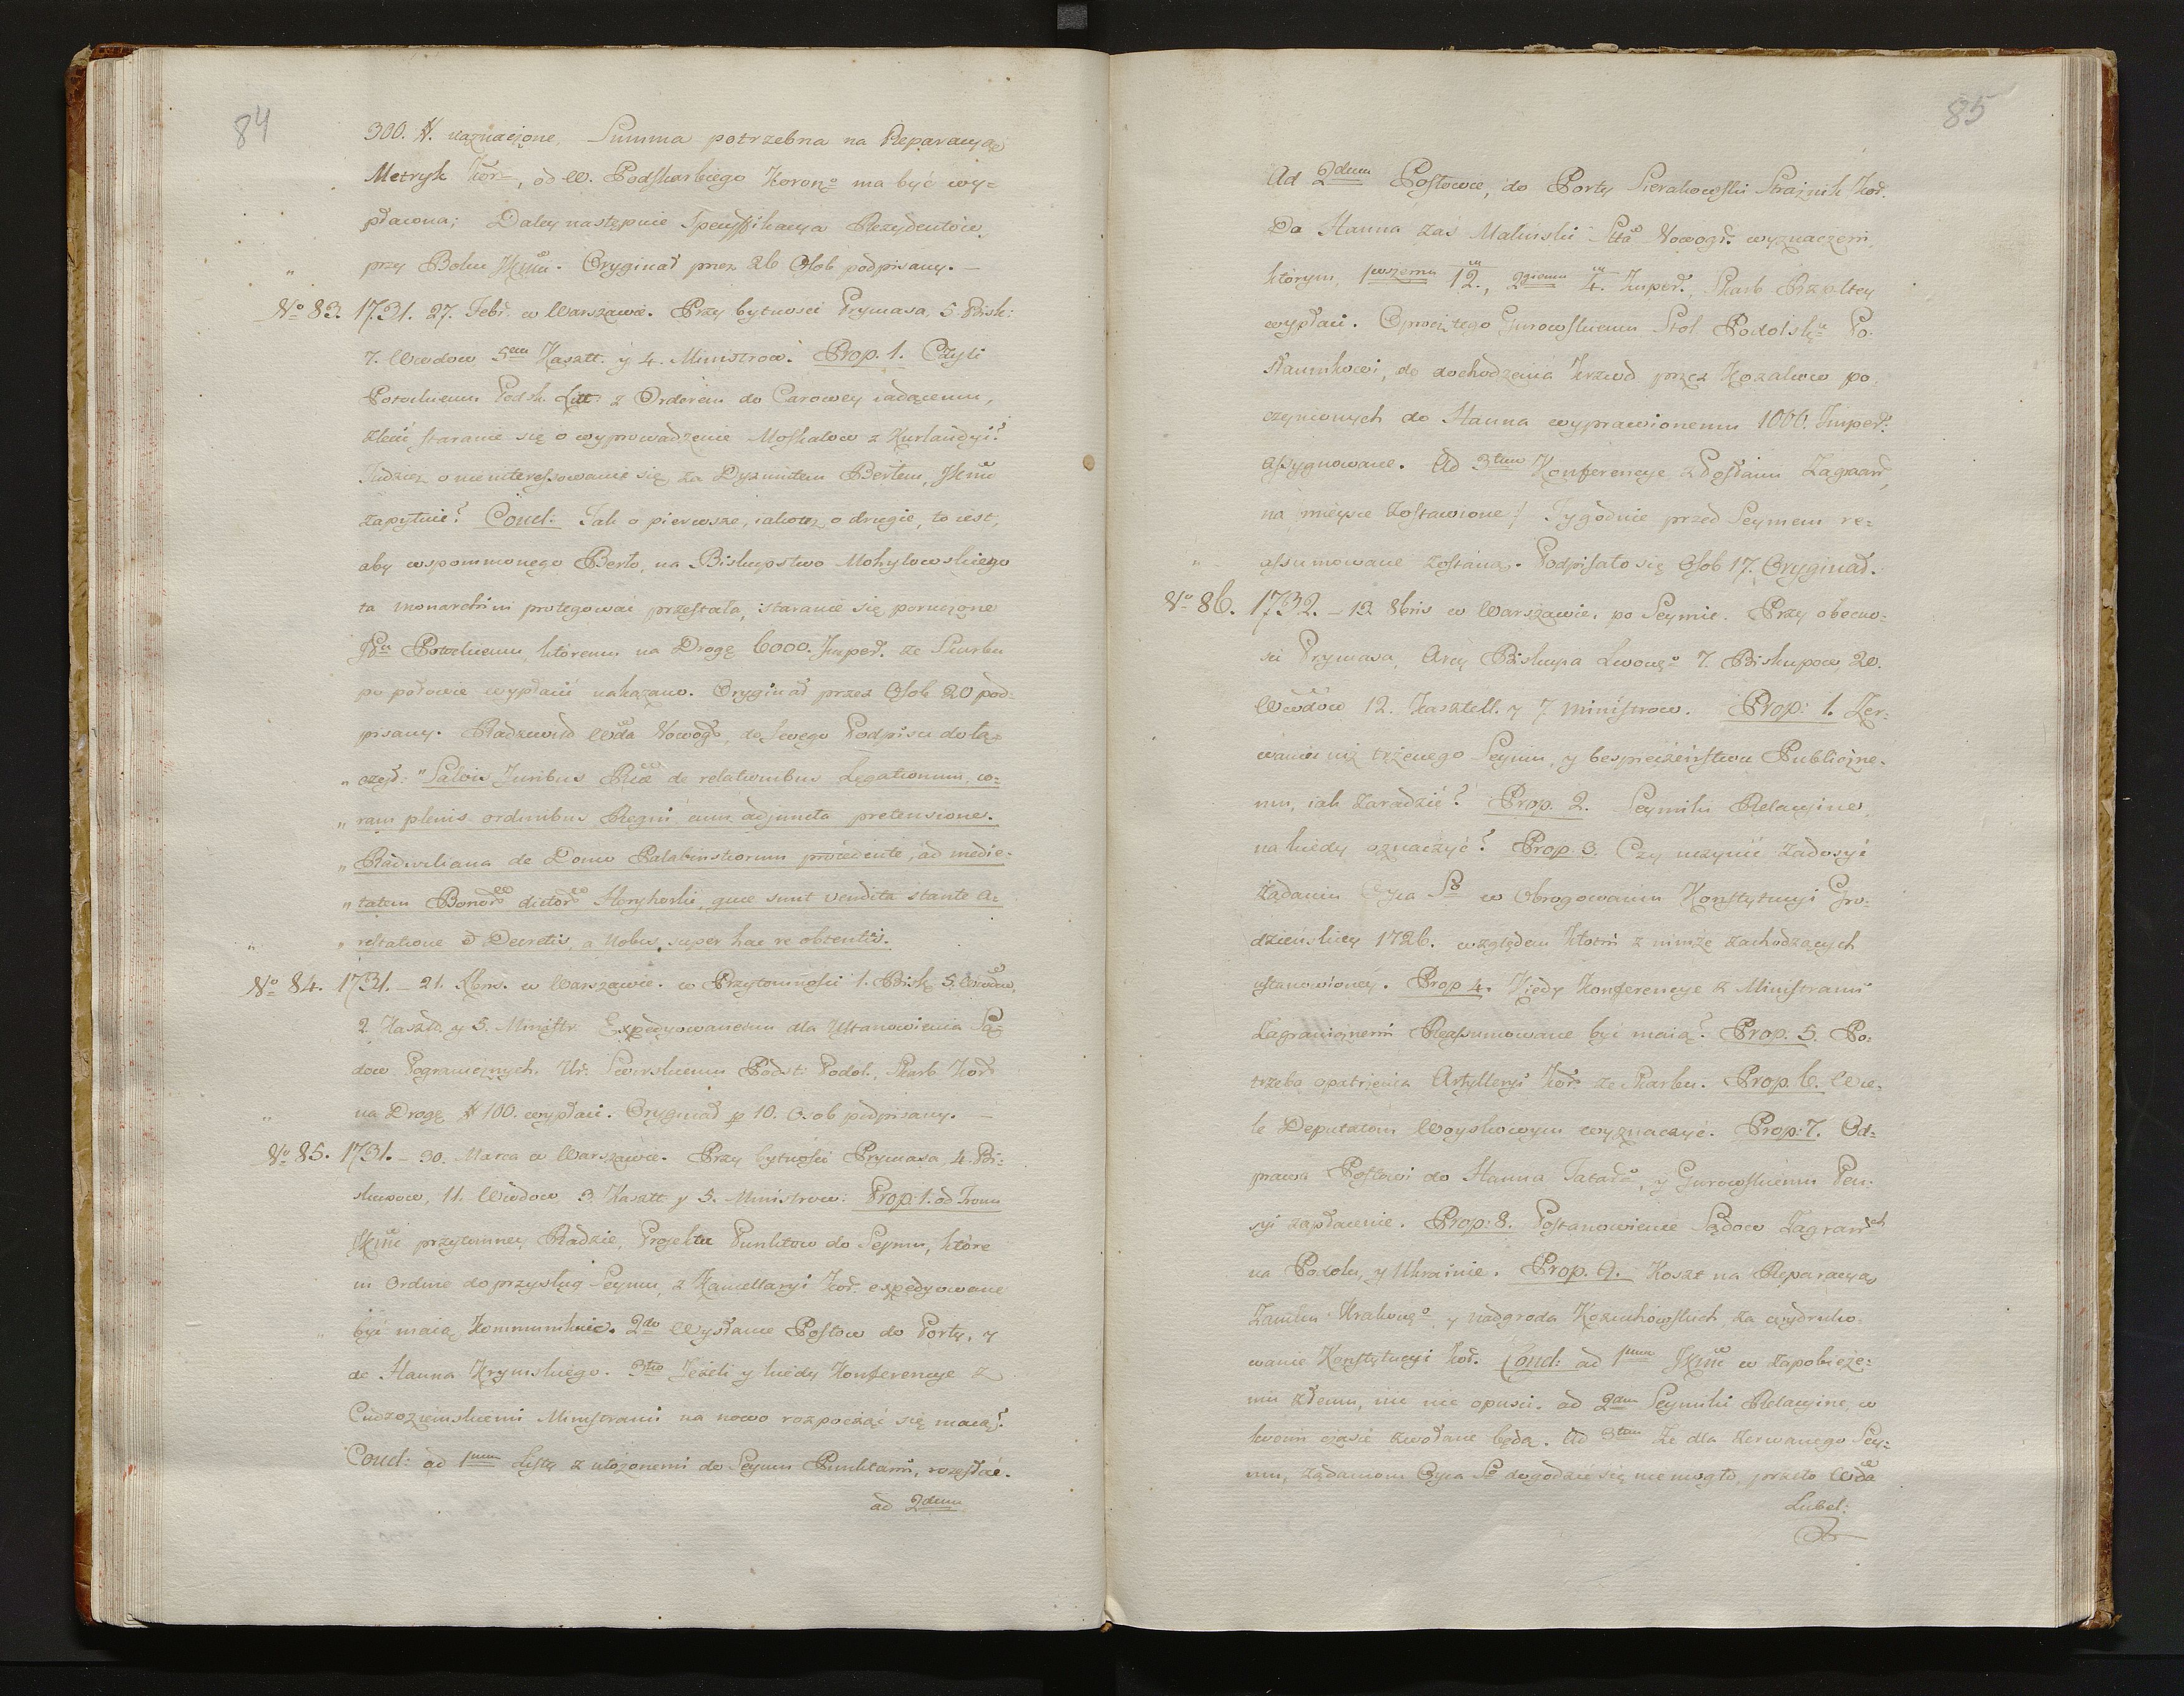 84
300. #. naznaczone. Summa potrzebna na Reparacyą
Metryk Kor:, od W. Podskarbiego Koronº ma być wy=
płacona; Daley następuie Specyfikacya Rezydentów
przy Boku JKMci. Oryginał przez 26 Osob podpisany. —
Nº 83. 1731. 27. Febr. w Warszawie. Przy bytnosci Prymasa, 5. Bisk:
7. Wwdow 5ciu Kasztt. y 4. Ministrow. Prop. 1. Czyli
Potockiemu Podsk. Litt: z Orderem do Carowey iadącemu,
zlecić staranie się o wyprowadzenie Moskalow z Kurlandyi?
Tudzież o nieinteressowanie się za Dyzunitem Bertem, JKMć
zapytuie? Concl. Jak o pierwsze, iakotez o drugie, to iest,
aby wspomnionego Berło, na Biskupstwo Mohylowskiego
ta monarchini protegować przestała, staranie się poruczone
JPu Potockiemu, któremu na Drogę 6000. Imper. ze Skarbu
po połowie wypłacić nakazano. Oryginał przez Osob 20 pod=
pisany. Radziwiłł Wda Nowogr, do swego Podpisu dołą=
„ czył: "Salvis Juribus Rcae de relationibus Legationum, co=
„ ram plenis ordinibus Regni, cum adjuncta pretensione.
„ Radiviliana de Domo Palabinskorum procedente, ad medie=
„ tatem Bonor dictor Horyhorki, quae sunt vendita stante a=
„ restatione & Decretis, a Nobis, super hac re obtentis.
Nº 84. 1731. — 21. Xbris. w Warszawie. w Przytomności 1. Bisk, 5. Wwdow,
2. Kasztt. y 5. Ministr. Expedyowanemu dla Ustanowienia Są=
dow Pogranicznych. Ur. Swirskiemu Podst: Podol., Skarb Kor
na Drogę # 100. wypłaci. Oryginał p 10. Osob podpisany. —
Nº 85. 1731. — 30. Marca w Warszawie. Przy bytności Prymasa, 4. Bi=
skupow, 11. Wwdow 3. Kasztt y 5. Ministrow: Prop: 1. od Tronu
JKMć przytomney Radzie, Projekta Punktow do Seymu, które
in Ordine do przyszłego Seymu, z Kancellaryi Kor. expedyowane
być maią Kommunikuie. 2do Wysłanie Posłow do Porty, y
do Hanna Krymskiego. 3tio Jeżeli y kiedy Konferencye z
Cudzoziemskiemi Ministrami na nowo rozpocząć się maią?
Concl: ad 1mum Listy z ułożonemi do Seymu Punktami, rozesłać.
ad 2dum
85
Ad 2dum Posłowie, do Porty Sierakowski Strażnik Kor.
Do Hanna zaś Maliński Stta Nowogr. wyznaczeni,
którym, 1wszemu 12., 2giemu 4. Imper. Skarb Rzpltey
wypłaci. Oprocz tego Gurowskiemu Stol Podolsku Po=
słannikowi, do dochodzenia krzywd przez Kozakow po=
czynionych do Hanna wyprawionemu 1000. Imper.
assygnowane. Ad 3tium Konferencye z Posłami Zagran,
na mieysce zostawione! Tygodnie przed Seymem re=
assumowane zostaną. Podpisało się Osob 17. Oryginał.
Nº 86. 1732. — 13. 8bris w Warszawie, po Seymie. Przy obecno=
ści Prymasa, Arcy Biskupa Lwowº 7. Biskupow, 20.
Wwdow 12. Kasztell. y 7. Ministrow. Prop: 1. Zer=
waniu niżtrzonego Seymu, y bespieczeństwu Publiczne=
mu, iak zaradzić? Prop. 2. Seymiki Relacyine,
na kiedy oznaczyć? Prop. 3. Czy uczynić zadosyć
żądaniu Oyca Sº w Obrogowaniu Konstytucyi Gro=
dzieńskiey 1726. względem Kłotni z nimże zachodzących
ustanowioney. Prop 4. Kiedy Konferencye z Ministrami
Zagranicznemi Reassumowane być maią? Prop. 5. Po=
trzeba opatrzenia Artylleryi Kor. ze Skarbu. Prop. 6. Wie=
le Deputatom Woyskowym wyznaczyć. Prop: 7. Od=
prawa Posłowi do Hanna Tatar, y Gurowskiemu Pen=
syi zapłacenie. Prop: 8. Postanowienie Sądow Zagranch
na Podolu, y Ukrainie. Prop. 9. Koszt na Reparacyą
Zamku Krakowº, y nadgroda Kozuchowskich, za wydruko=
wanie Konstytucyi Kor. Concl: ad 1mum JKMć w zapobieże=
niu złemu, nic nie opusci. ad 2dum Seymiki Relacyine, w
swoim czasie zwołane będą. Ad 3tium Że dla zerwanego Sey=
mu, żądaniom Oyca Sº dogodzić się nie mogło, przeto Wda
Lubel: